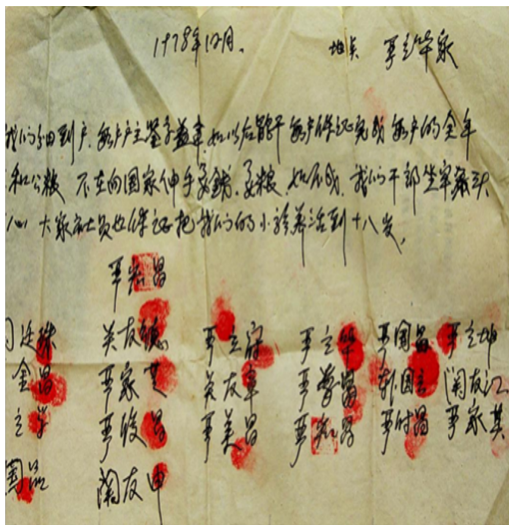 1978年12月. 地点 严立华家
我们分田到户. 每户户主签字盖章 如以后能干 每户保证完成每户的全年
和公粮 不在向国家伸手要钱、要粮 如不成, 我们干部坐牢杀头
心 大家社员也保证把我们的小孩养活到十八岁,
严宏昌
廷珠 关友德 严立富 严立华 严国昌 严立坤
金昌 严家芝 关友章 严学昌 韩国云 关友江
立学 严俊昌 严美昌 严宏昌 严付昌 严家其
国品 关友申